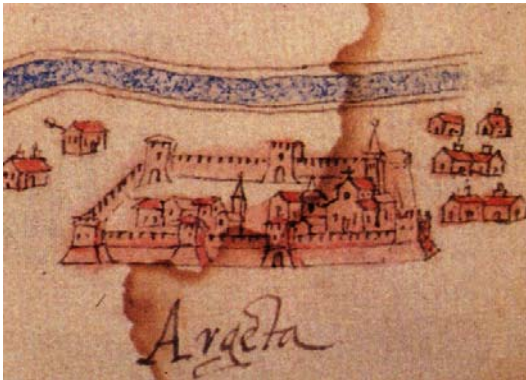 Argẽta